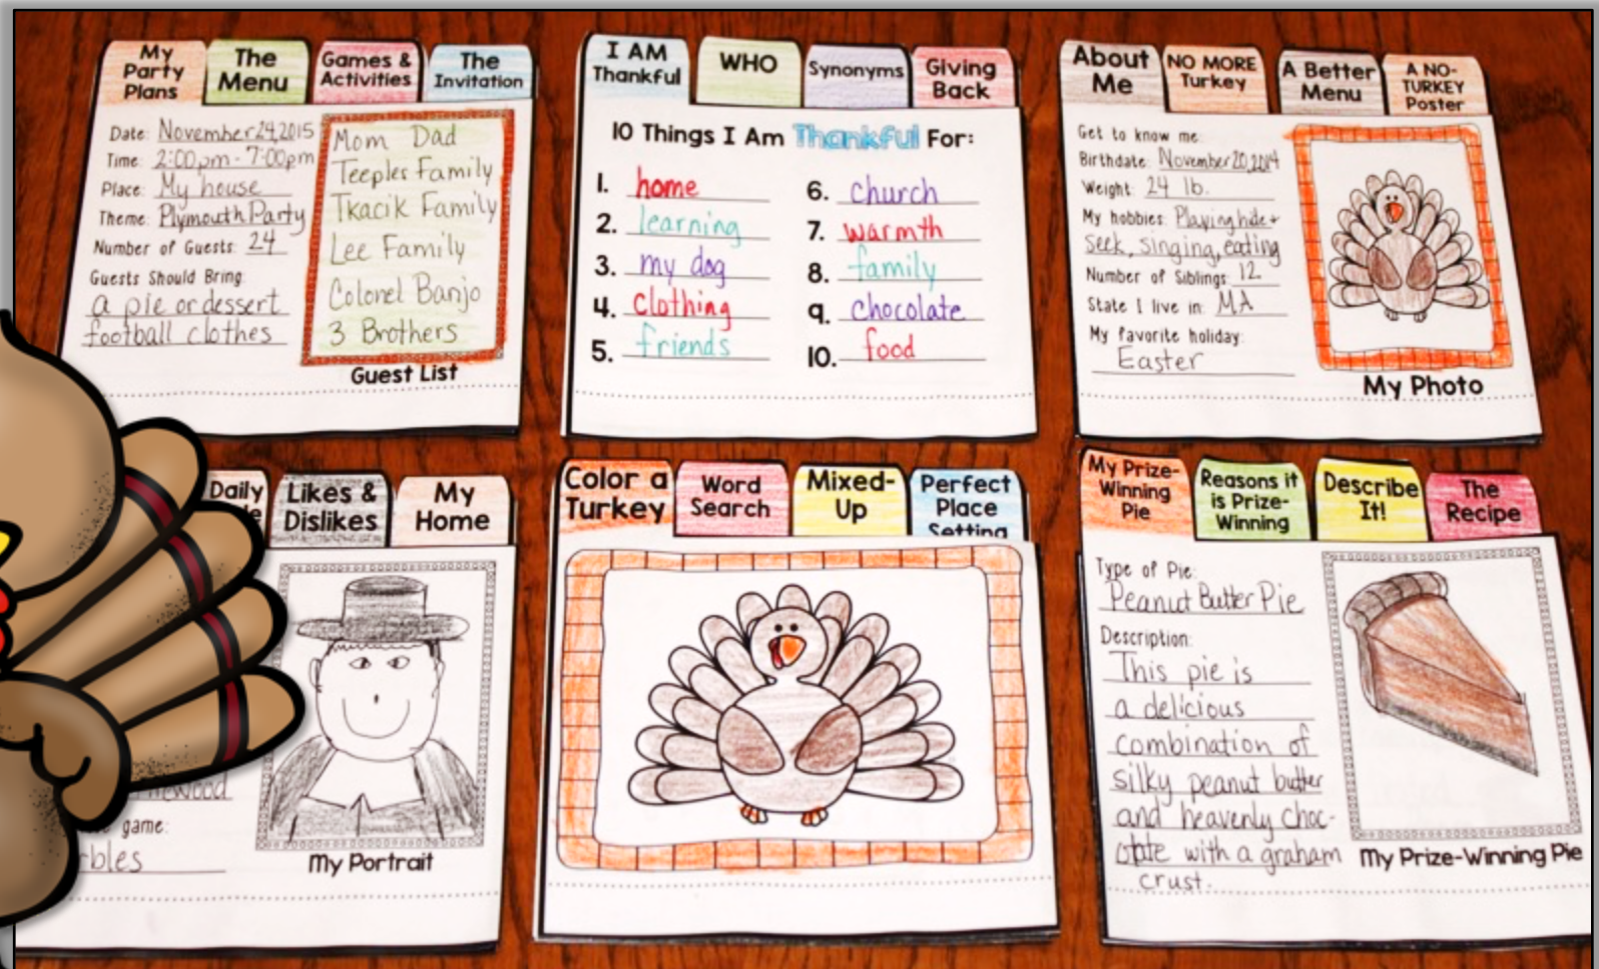 My
Party
Plans
The
Menu
Games &
Activities
The
Invitation
Date: November 24, 2015
Time: 2:00pm - 7:00pm
Place: My house
Theme: Plymouth Party
Number of Guests: 24
Guests Should Bring:
a pie or dessert
football clothes
Mom Dad
Teeples Family
Tkacik Family
Lee Family
Colonel Banjo
3 Brothers
Guest List
I AM
Thankful
WHO
Synonyms
Giving
Back
10 Things I Am Thankful For:
1. home
2. learning
3. my dog
4. clothing
5. friends
6. church
7. warmth
8. family
9. chocolate
10. food
About
Me
NO MORE
Turkey
A Better
Menu
A NO-
TURKEY
Poster
Get to know me:
Birthdate: November 20, 2014
Weight: 24 lb.
My hobbies: Playing hide +
seek, singing, eating
Number of Siblings: 12
State I live in: MA
My favorite holiday:
Easter
My Photo
Daily
Likes &
Dislikes
My
Home
game:
My Portrait
Color a
Turkey
Word
Search
Mixed-
Up
Perfect
Place
Setting
My Prize-
Winning
Pie
Reasons it
is Prize-
Winning
Describe
It!
The
Recipe
Type of Pie:
Peanut Butter Pie
Description:
This pie is
a delicious
combination of
silky peanut butter
and heavenly choc-
olate with a graham
crust.
My Prize-Winning Pie